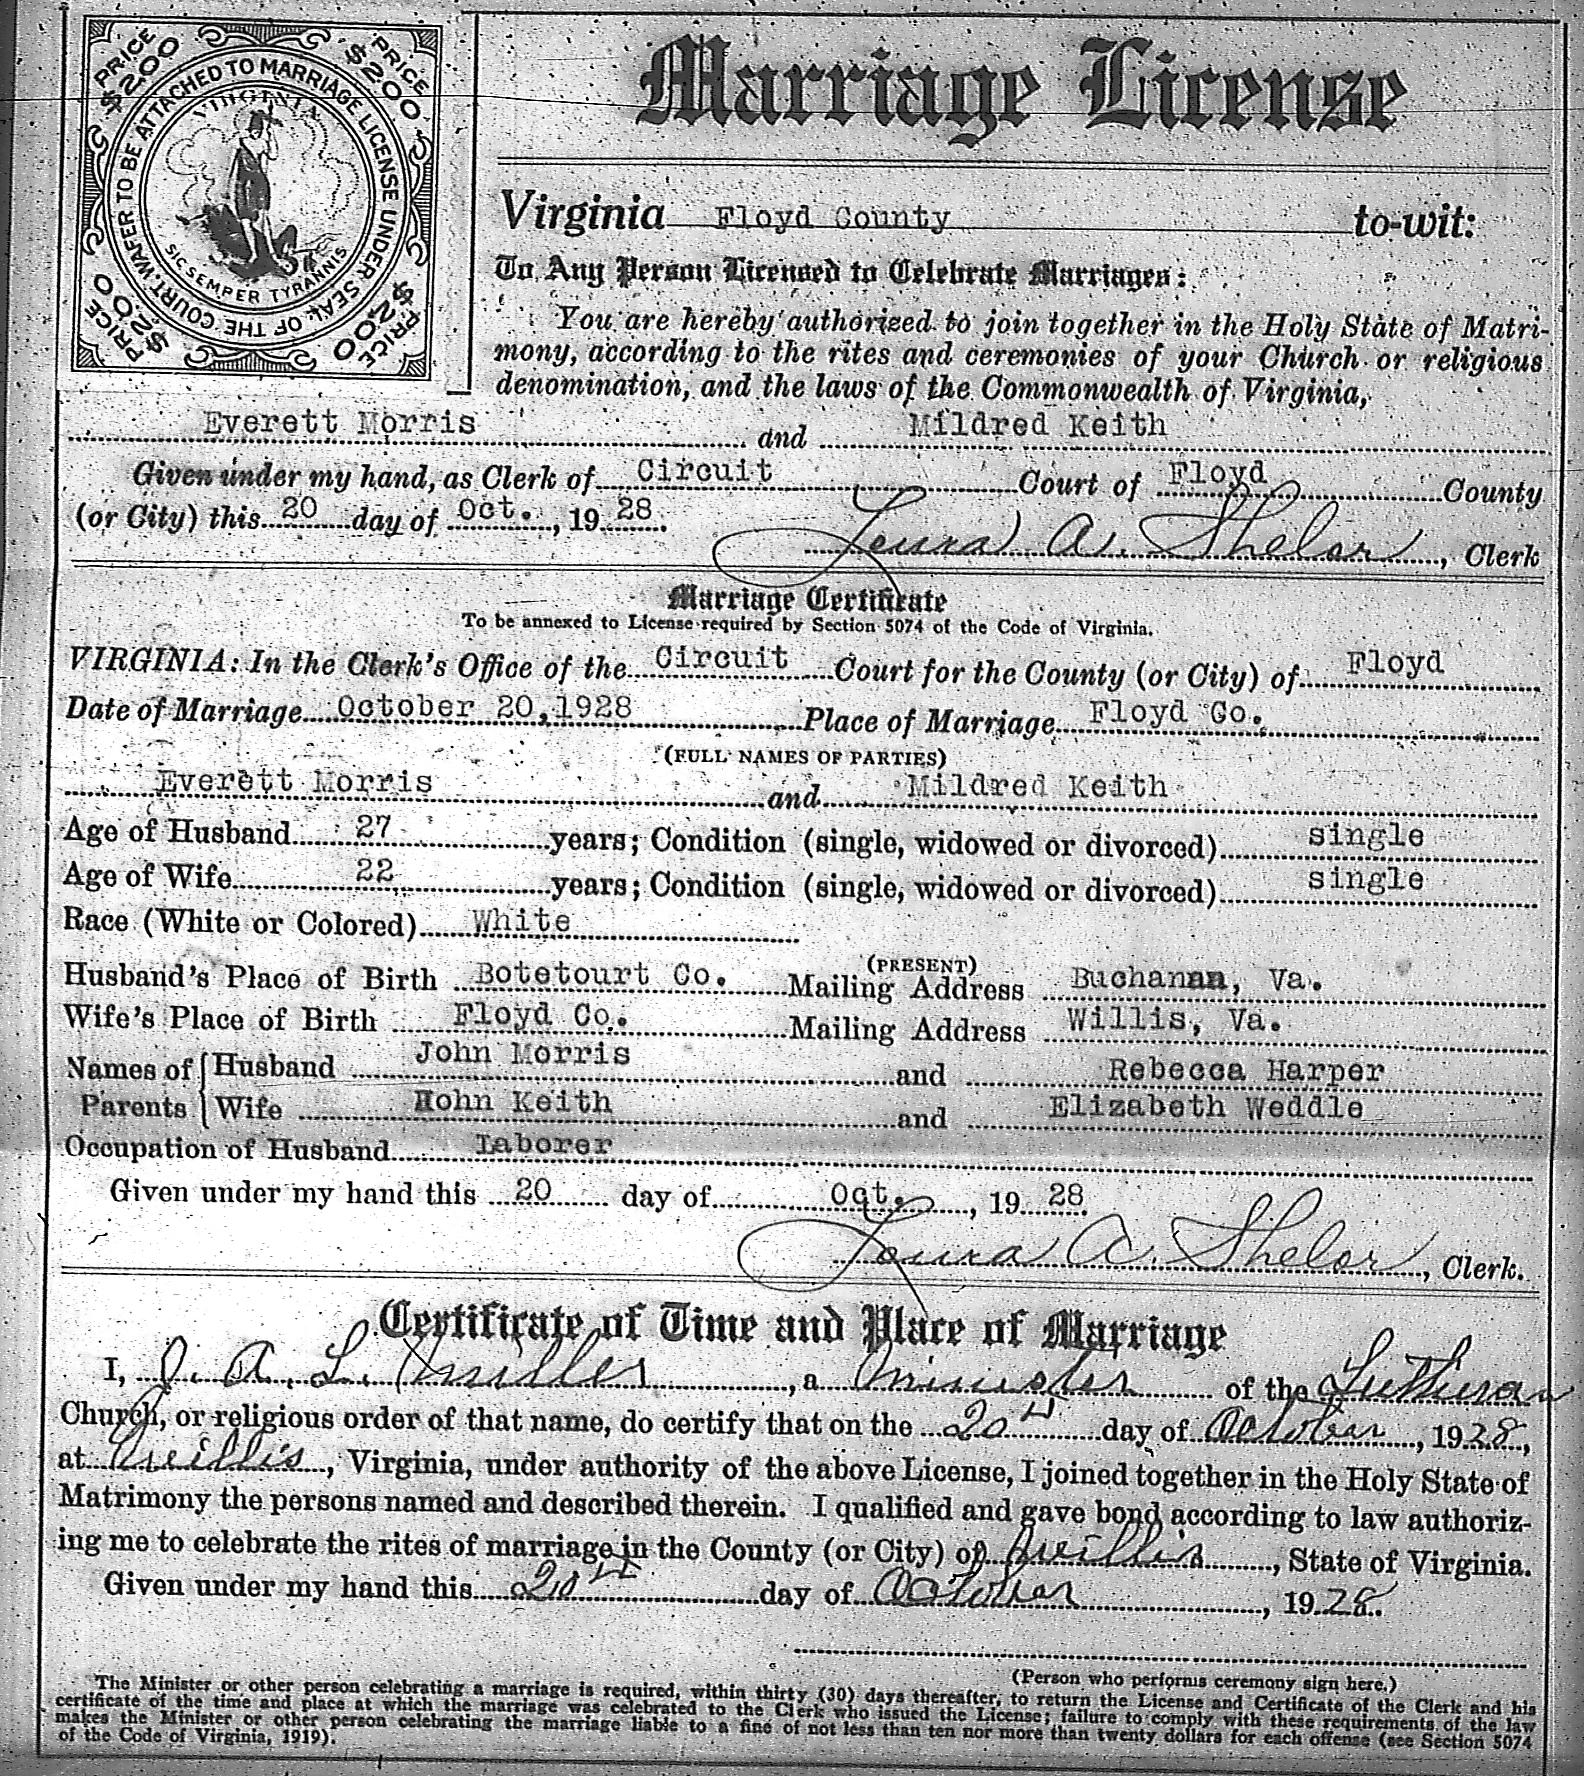 PRICE $2.00
PRICE $2.00
PRICE $2.00
PRICE $2.00
WAFER TO BE ATTACHED TO MARRIAGE LICENSE UNDER SEAL OF THE COURT.
VIRGINIA
SIC SEMPER TYRANNIS
Marriage License
Virginia Floyd County to-wit:
To Any Person Licensed to Celebrate Marriages:
You are hereby authorized to join together in the Holy State of Matri-
mony, according to the rites and ceremonies of your Church or religious
denomination, and the laws of the Commonwealth of Virginia,
Everett Morris and Mildred Keith
Given under my hand, as Clerk of Circuit Court of Floyd County
(or City) this 20 day of Oct., 19 28.
Loura A. Shelor, Clerk
Marriage Certificate
To be annexed to License required by Section 5074 of the Code of Virginia.
VIRGINIA: In the Clerk's Office of the Circuit Court for the County (or City) of Floyd
Date of Marriage October 20, 1928 Place of Marriage Floyd Co.
(FULL NAMES OF PARTIES)
Everett Morris and Mildred Keith
Age of Husband 27 years; Condition (single, widowed or divorced) single
Age of Wife 22 years; Condition (single, widowed or divorced) single
Race (White or Colored) White
Husband's Place of Birth Botetourt Co. (PRESENT) Mailing Address Buchanan, Va.
Wife's Place of Birth Floyd Co. Mailing Address Willis, Va.
Names of Parents { Husband John Morris and Rebecca Harper
{ Wife John Keith and Elizabeth Weddle
Occupation of Husband Laborer
Given under my hand this 20 day of Oct., 19 28.
Loura A. Shelor, Clerk.
Certificate of Time and Place of Marriage
I, J. A. L. Miller, a Minister of the Lutheran
Church, or religious order of that name, do certify that on the 20th day of October, 1928,
at Willis, Virginia, under authority of the above License, I joined together in the Holy State of
Matrimony the persons named and described therein. I qualified and gave bond according to law authoriz-
ing me to celebrate the rites of marriage in the County (or City) of Willis, State of Virginia.
Given under my hand this 20th day of October, 1928.
(Person who performs ceremony sign here.)
The Minister or other person celebrating a marriage is required, within thirty (30) days thereafter, to return the License and Certificate of the Clerk and his
certificate of the time and place at which the marriage was celebrated to the Clerk who issued the License; failure to comply with these requirements of the law
makes the Minister or other person celebrating the marriage liable to a fine of not less than ten nor more than twenty dollars for each offense (see Section 5074
of the Code of Virginia, 1919).